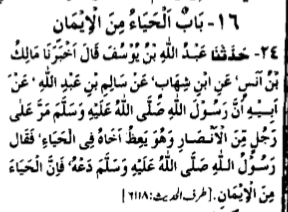 ١٦- بَابٌ اَلْحَيَاءُ مِنَ الْاِيْمَانِ
٢٤- حَدَّثَنَا عَبْدُ اللّٰهِ بْنُ يُوْسُفَ قَالَ اَخْبَرَنَا مَالِكُ
بْنُ اَنَسٍ، عَنِ ابْنِ شِهَابٍ، عَنْ سَالِمِ بْنِ عَبْدِ اللّٰهِ، عَنْ
اَبِيْهِ اَنَّ رَسُوْلَ اللّٰهِ صَلَّى اللّٰهُ عَلَيْهِ وَسَلَّمَ مَرَّ عَلٰى
رَجُلٍ مِّنَ الْاَنْصَارِ وَهُوَ يَعِظُ اَخَاهُ فِى الْحَيَاءِ، فَقَالَ
رَسُوْلُ اللّٰهِ صَلَّى اللّٰهُ عَلَيْهِ وَسَلَّمَ دَعْهُ، فَاِنَّ الْحَيَاءَ
مِنَ الْاِيْمَانِ. [طرف الحدیث: ٦١١٨]